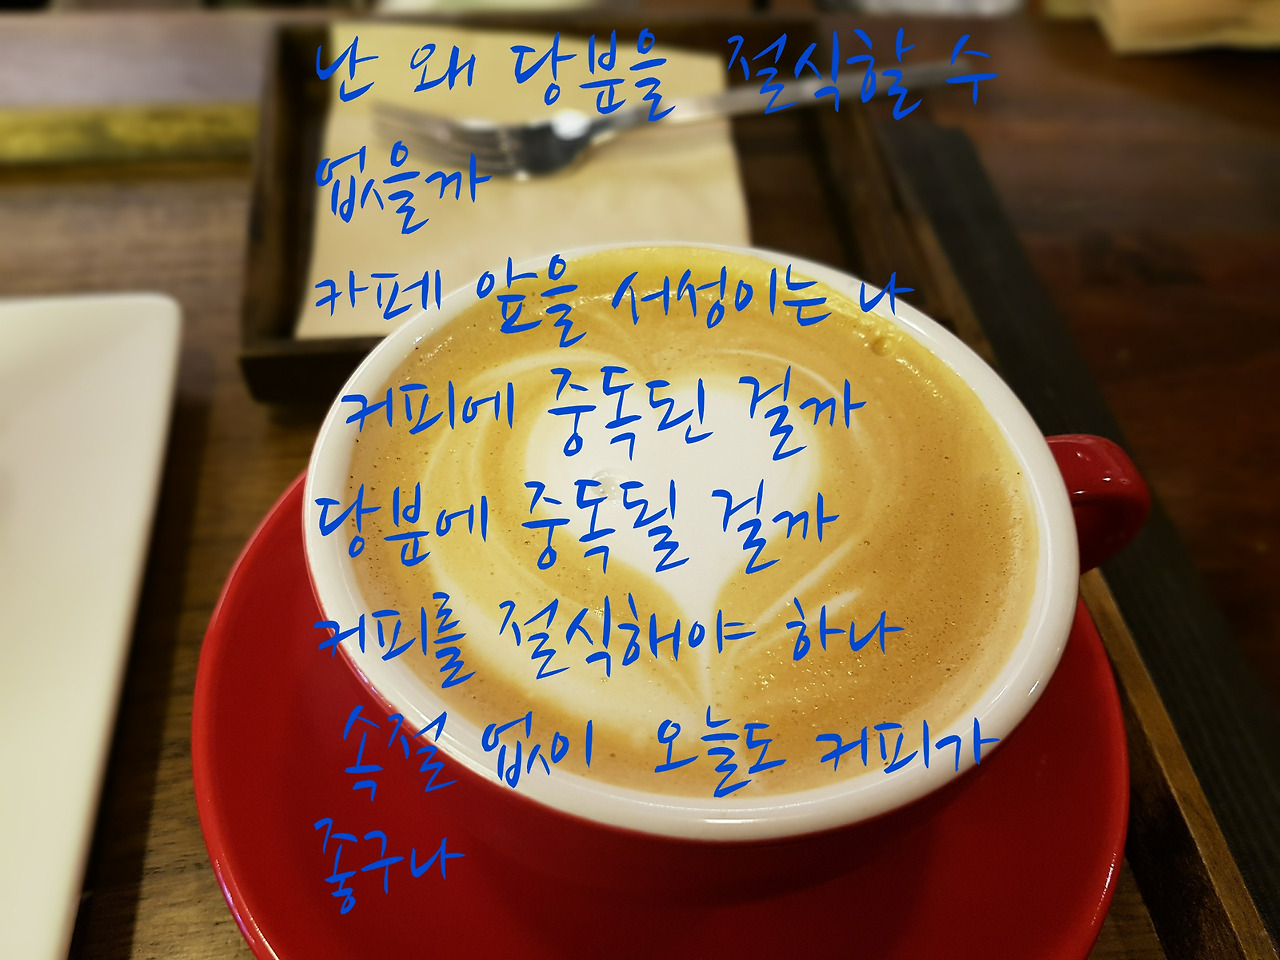 난 왜 당분을 절식할 수
없을까
카페 앞을 서성이는 나
커피에 중독된 걸까
당분에 중독될 걸까
커피를 절식해야 하나
속절 없이 오늘도 커피가
좋구나